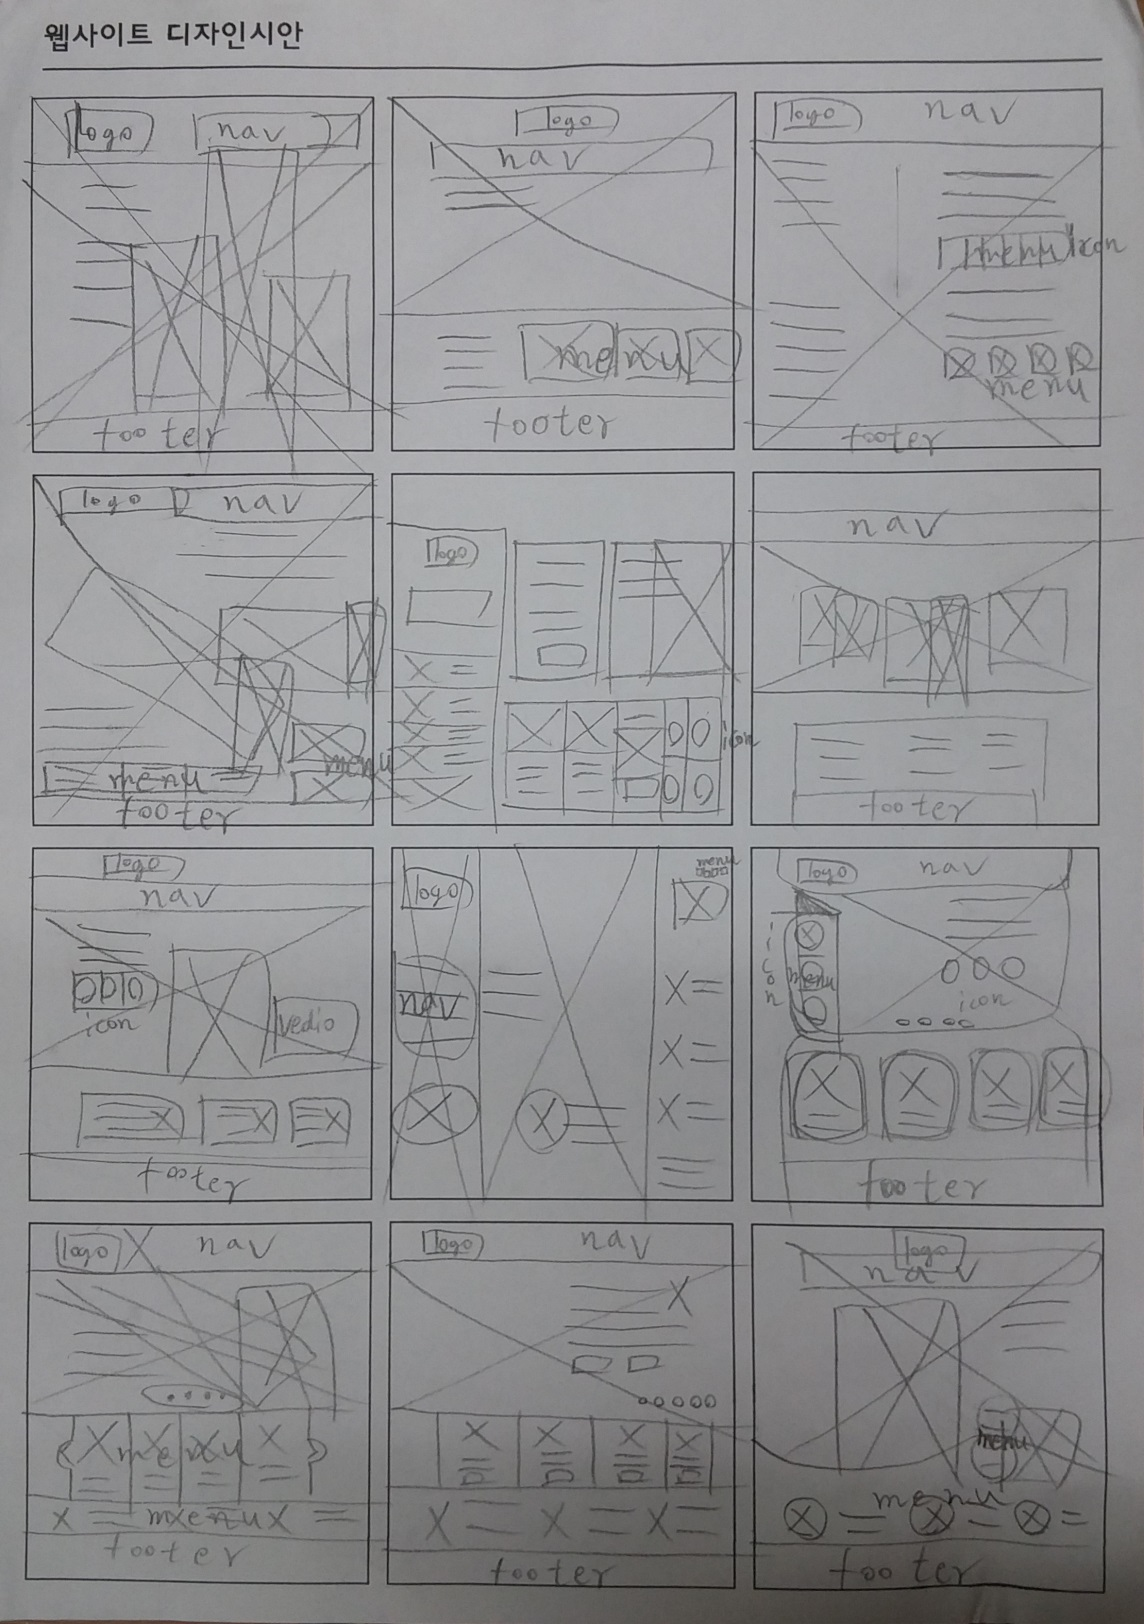 웹사이트 디자인시안
logo
nav
footer
logo
nav
menu
footer
logo
nav
menu icon
menu
footer
logo
nav
menu
menu
footer
logo
icon
nav
footer
logo
nav
icon
vedio
footer
logo
nav
menu
logo
nav
icon
menu
icon
footer
logo
nav
menu
menu
footer
logo
nav
footer
logo
nav
menu
menu
footer